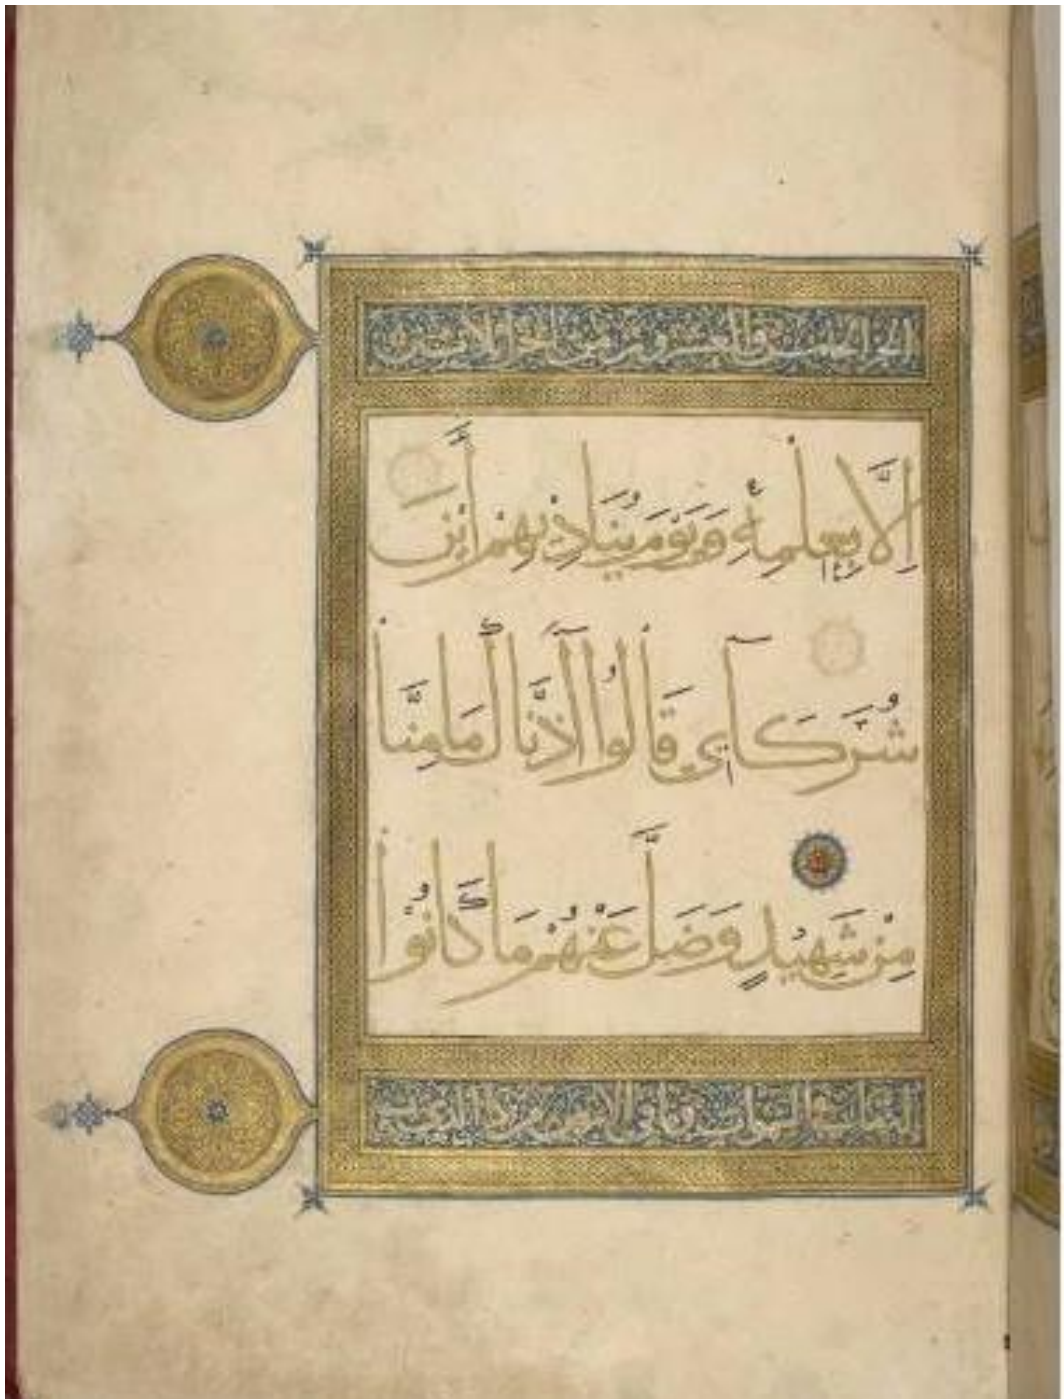 الجزء الخامس والعشرون من أجزاء ثلاثين
إِلَّا بِعِلْمِهِ وَيَوْمَ يُنَادِيهِمْ أَيْنَ
شُرَكَآءِي قَالُوا آذَنَّاكَ مَا مِنَّا
مِنْ شَهِيدٍ وَضَلَّ عَنْهُمْ مَا كَانُوا
السموات